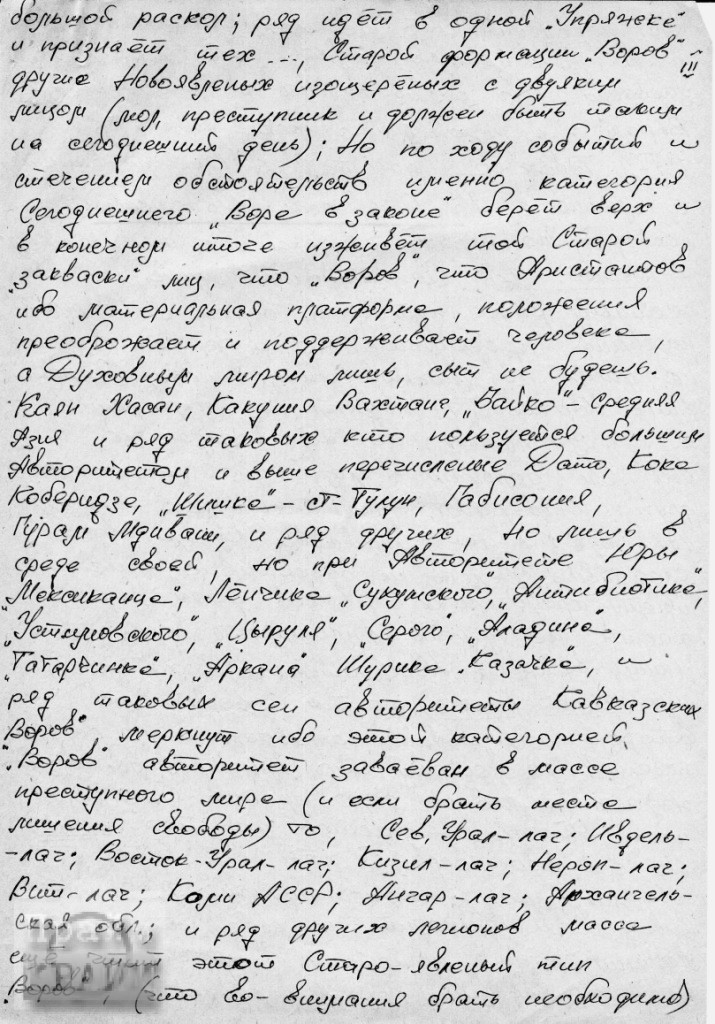 большой раскол; ряд идёт в одной „Упряжке"
и признаёт тех..., Старой формации „Воров"
III
другие Новоявленых изощерёных с двуяким
лицом (мол, преступник и должен быть таким
на сегоднешний день); Но по ходу событий и
стечением обстоятельств именно категория
Сегоднешнего „Воре в законе" берёт верх и
в конечном итоге изживёт той Старой
„закваски" лиц, что „Воров", что Аристантов
ибо материальная платформа, положения
преоброжает и поддерживает человека,
а Духовным миром лишь, сыт не будешь.
Каян Хасан, Какушия Вахтанг, „Байко" - средняя
Азия и ряд таковых кто пользуется большим
Авторитетом и выше перечисленые Дато, Коке
Коберидзе, „Шишке" - Тулун, Габисония,
Гурам Мдивани, и ряд других, но лишь в
среде своей, но при Авторитете Юры
„Мексиканца", Лёнчика „Сухумского", „Антибиотика",
„Устимовского", „Цыруля", „Серого", „Аладина",
„Татарчинка", „Аркана" Шурике „Казачке", и
ряд таковых сеи авторитеты Кавказских
Воров", меркнут ибо этой категорией
„Воров" авторитет заваёван в массе
преступного мира (и если брать места
лишения свободы) то, Сев. Урал-лаг; Ивдель-
-лаг; Восток-Урал-лаг; Кизил-лаг; Нероп-лаг;
Вит-лаг; Коми АССР; Ангар-лаг; Архангель-
ская обл.; и ряд других легионов масса
ещё чтит этот Старо-явленый тип
„Воров", (что во-внимания брать необходимо)